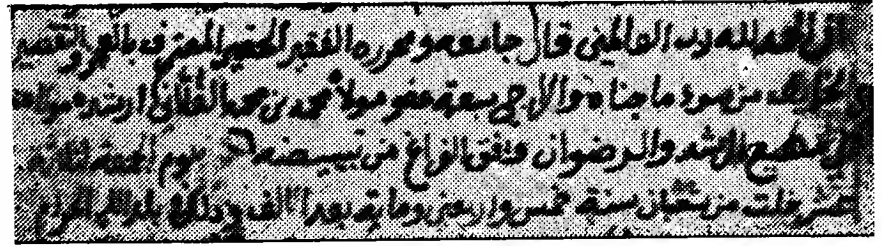 الحمد لله رب العالمين قال جامعه ومحرره الفقير الحقير المعترف بالعجز والتقصير
من سوء ما جناه والراجي سعة عفو مولاه محمد بن محمد ارشده مولاه
الرشد والرضوان وتفق الفراغ من تبييضه يوم الجمعة لثلاثة
عشر خلت من شعبان سنة خمس واربعين وماية بعد الالف وذلك ببلد الله الحرام